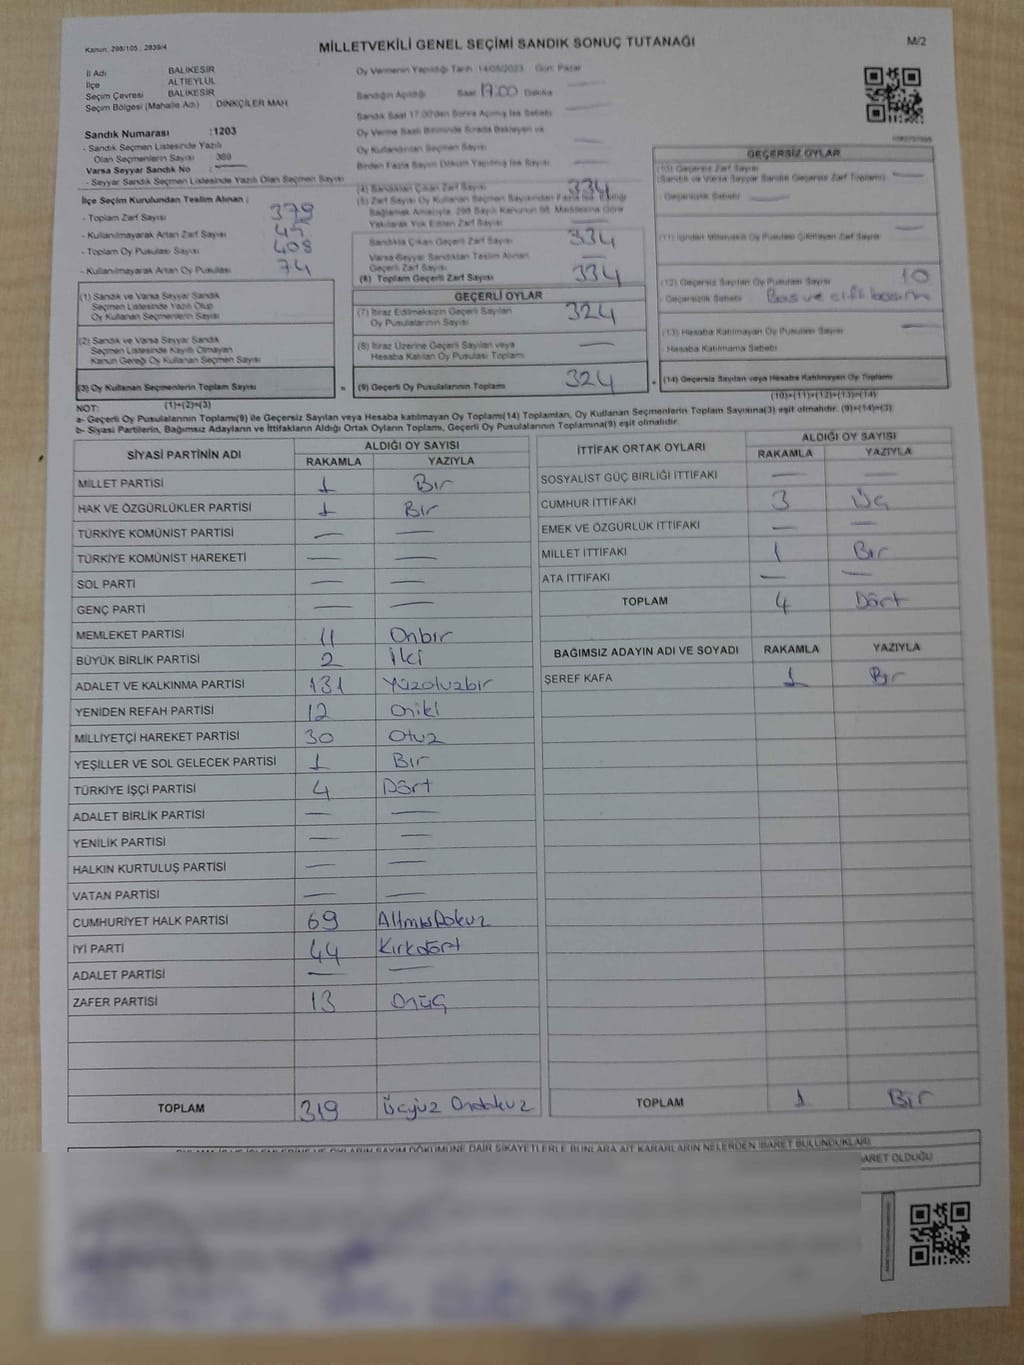 Kanun: 298/105 , 2839/4
MİLLETVEKİLİ GENEL SEÇİMİ SANDIK SONUÇ TUTANAĞI
M/2
İl Adı BALIKESİR
İlçe ALTIEYLÜL
Seçim Çevresi BALIKESİR
Seçim Bölgesi (Mahalle Adı) : DİNKÇİLER MAH.
Sandık Numarası : 1203
- Sandık Seçmen Listesinde Yazılı
Olan Seçmenlerin Sayısı : 369
Varsa Seyyar Sandık No
- Seyyar Sandık Seçmen Listesinde Yazılı Olan Seçmen Sayısı
İlçe Seçim Kurulundan Teslim Alınan :
- Toplam Zarf Sayısı 379
- Kullanılmayarak Artan Zarf Sayısı 45
- Toplam Oy Pusulası Sayısı 408
- Kullanılmayarak Artan Oy Pusulası 74
(1) Sandık ve Varsa Seyyar Sandık
Seçmen Listesinde Yazılı Olup
Oy Kullanan Seçmenlerin Sayısı
(2) Sandık ve Varsa Seyyar Sandık
Seçmen Listesinde Kayıtlı Olmayan
Kanun Gereği Oy Kullanan Seçmen Sayısı
(3) Oy Kullanan Seçmenlerin Toplam Sayısı
(1)+(2)=(3)
Oy Vermenin Yapıldığı Tarih: 14/05/2023 Gün: Pazar
Sandığın Açıldığı Saat 17.00 Dakika
Sandık Saat 17:00'den Sonra Açılmış İse Sebebi
Oy Verme Saati Bitiminde Sırada Bekleyen ve
Oy Kullandırılan Seçmen Sayısı
Birden Fazla Sayım Döküm Yapılmış İse Sayısı
(4) Sandıktan Çıkan Zarf Sayısı 334
(5) Zarf Sayısı Oy Kullanan Seçmen Sayısından Fazla İse, Eşitliği
Bağlamak Amacıyla, 298 Sayılı Kanunun 98. Maddesine Göre
Yakılarak Yok Edilen Zarf Sayısı
Sandıkta Çıkan Geçerli Zarf Sayısı 334
Varsa Seyyar Sandıktan Teslim Alınan
Geçerli Zarf Sayısı
(6) Toplam Geçerli Zarf Sayısı 334
GEÇERLİ OYLAR
(7) İtiraz Edilmeksizin Geçerli Sayılan
Oy Pusulalarının Sayısı 324
(8) İtiraz Üzerine Geçerli Sayılan veya
Hesaba Katılan Oy Pusulası Toplamı
= (9) Geçerli Oy Pusulalarının Toplamı 324
GEÇERSİZ OYLAR
(10) Geçersiz Zarf Sayısı
(Sandık ve Varsa Seyyar Sandık Geçersiz Zarf Toplamı)
- Geçersizlik Sebebi
(11) İçinden Milletvekili Oy Pusulası Çıkmayan Zarf Sayısı
(12) Geçersiz Sayılan Oy Pusulası Sayısı 10
- Geçersizlik Sebebi
(13) Hesaba Katılmayan Oy Pusulası Sayısı
- Hesaba Katılmama Sebebi
+ (14) Geçersiz Sayılan veya Hesaba Katılmayan Oy Toplamı
(10)+(11)+(12)+(13)=(14)
NOT:
a- Geçerli Oy Pusulalarının Toplamı(9) ile Geçersiz Sayılan veya Hesaba katılmayan Oy Toplamı(14) Toplamları, Oy Kullanan Seçmenlerin Toplam Sayısına(3) eşit olmalıdır. (9)+(14)=(3)
b- Siyasi Partilerin, Bağımsız Adayların ve İttifakların Aldığı Ortak Oyların Toplamı, Geçerli Oy Pusulalarının Toplamına(9) eşit olmalıdır.
SİYASİ PARTİNİN ADI ALDIĞI OY SAYISI
RAKAMLA YAZIYLA
MİLLET PARTİSİ 1 Bir
HAK VE ÖZGÜRLÜKLER PARTİSİ 1 Bir
TÜRKİYE KOMÜNİST PARTİSİ — —
TÜRKİYE KOMÜNİST HAREKETİ — —
SOL PARTİ — —
GENÇ PARTİ — —
MEMLEKET PARTİSİ 11 Onbir
BÜYÜK BİRLİK PARTİSİ 2 İki
ADALET VE KALKINMA PARTİSİ 131 Yüzotuzbir
YENİDEN REFAH PARTİSİ 12 Oniki
MİLLİYETÇİ HAREKET PARTİSİ 30 Otuz
YEŞİLLER VE SOL GELECEK PARTİSİ 1 Bir
TÜRKİYE İŞÇİ PARTİSİ 4 Dört
ADALET BİRLİK PARTİSİ — —
YENİLİK PARTİSİ — —
HALKIN KURTULUŞ PARTİSİ — —
VATAN PARTİSİ — —
CUMHURİYET HALK PARTİSİ 69 AltmışDokuz
İYİ PARTİ 44 Kırkdört
ADALET PARTİSİ — —
ZAFER PARTİSİ 13 Onüç
TOPLAM 319 Üçyüz Ondokuz
İTTİFAK ORTAK OYLARI ALDIĞI OY SAYISI
RAKAMLA YAZIYLA
SOSYALİST GÜÇ BİRLİĞİ İTTİFAKI — —
CUMHUR İTTİFAKI 3 Üç
EMEK VE ÖZGÜRLÜK İTTİFAKI — —
MİLLET İTTİFAKI 1 Bir
ATA İTTİFAKI — —
TOPLAM 4 Dört
BAĞIMSIZ ADAYIN ADI VE SOYADI RAKAMLA YAZIYLA
ŞEREF KAFA 1 Bir
TOPLAM 1 Bir
SAYIM DÖKÜMÜNE DAİR ŞİKAYETLERLE BUNLARA AİT KARARLARIN NELERDEN İBARET BULUNDUKLARI
İBARET OLDUĞU